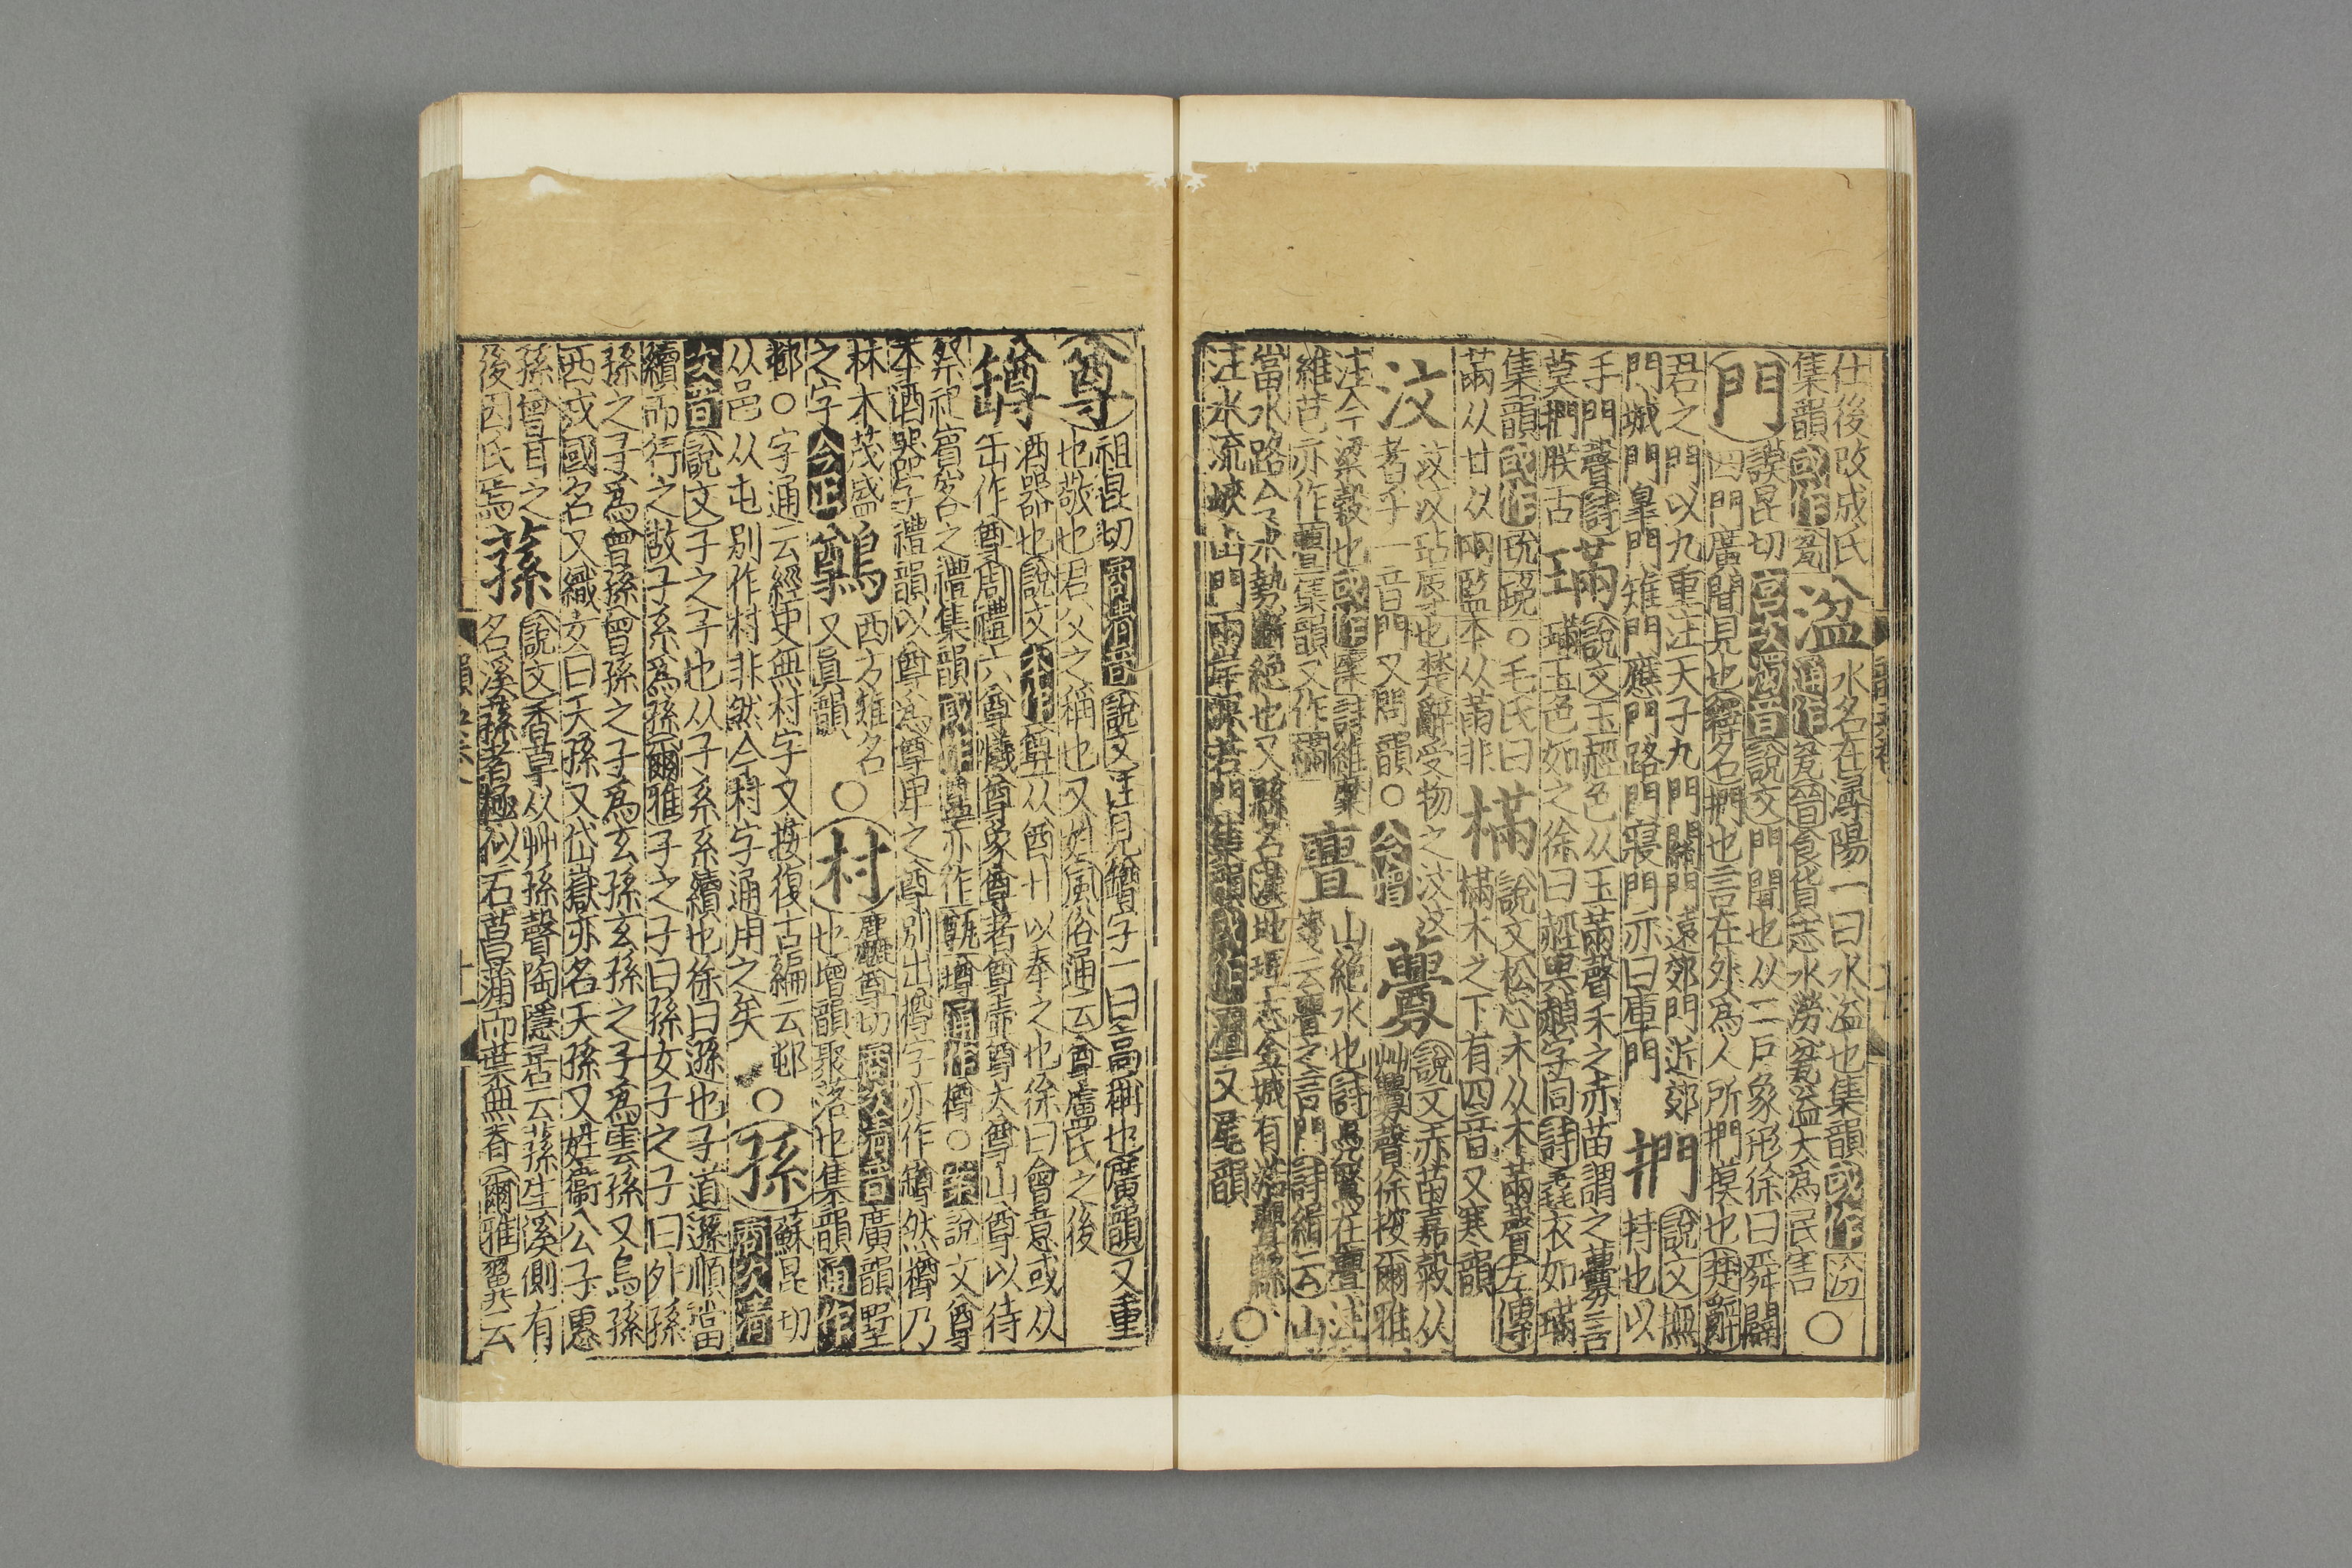 仕後改成氏
集韻或作瓮
湓
水名在潯陽一曰水溢也集韻或作汾
通作瓮晉食貨志水潦瓮溢大爲民害○
門
謨昆切宮次濁音說文門聞也从二戶象形徐曰舜闢
四門廣聞見也釋名捫也言在外爲人所捫摸也楚辭
君之門以九重注天子九門關門遠郊門近郊
門城門皐門雉門應門路門寢門亦曰庫門
捫
說文撫
持也以
手門聲詩
莫捫朕舌
璊
說文玉經色从玉㒼聲禾之赤苗謂之虋言
璊玉色如之徐曰經與赬字同詩毳衣如璊
集韻或作玧𤫩○毛氏曰
㒼从廿从㒳監本从萳非
樠
說文松心木从木㒼聲左傳
樠木之下有四音又寒韻
汶
汶汶玷辱也楚辭受物之汶汶
者乎一音門又問韻○今增
虋
說文赤苗嘉穀从
艸釁聲徐按爾雅
注今粱穀也或作穈詩維穈
維芑亦作虋集韻又作𤅢
亹
山絕水也詩鳧鷖在亹注
箋云亹之言門詩緝云山
當水路令水勢斷絕也又縣名漢地理志金城有浩亹縣
注水流峽山門兩岸深若門集韻或作璺又尾韻○
尊
祖昆切商清音說文注見罇字一曰高稱也廣韻又重
也敬也君父之稱也又姓風俗通云尊盧氏之後
罇
酒器也說文本作尊从酋廾以奉之也徐曰會意或从
缶作尊周禮六尊犧尊象尊著尊壺尊大尊山尊以待
祭祀賓客之禮集韻或作𢍜亦作甒墫通作樽○案說文尊
本酒器字禮韻以尊爲尊卑之尊別出樽字亦作罇然樽乃
林木茂盛
之字今正
鷷
西方雉名
又眞韻
○
村
麤尊切商次清音廣韻墅
也增韻聚落也集韻通作
邨○字通云經史無村字文按復古編云邨
从邑从屯別作村非然今村字通用之矣○
孫
蘇昆切
商次清
次音說文子之子也从子系系續也徐曰遜也子道遜順當
續而行之故子系爲孫爾雅子之子曰孫女子之子曰外孫
孫之子爲曾孫曾孫之子爲玄孫玄孫之子爲雲孫又烏孫
西戎國名又織女曰天孫又岱嶽亦名天孫又姓衞公子惠
孫曾耳之
後因氏焉
蓀
說文香草从艸孫聲陶隱居云蓀生溪側有
名溪蓀者極似石菖蒲而葉無脊爾雅翼云